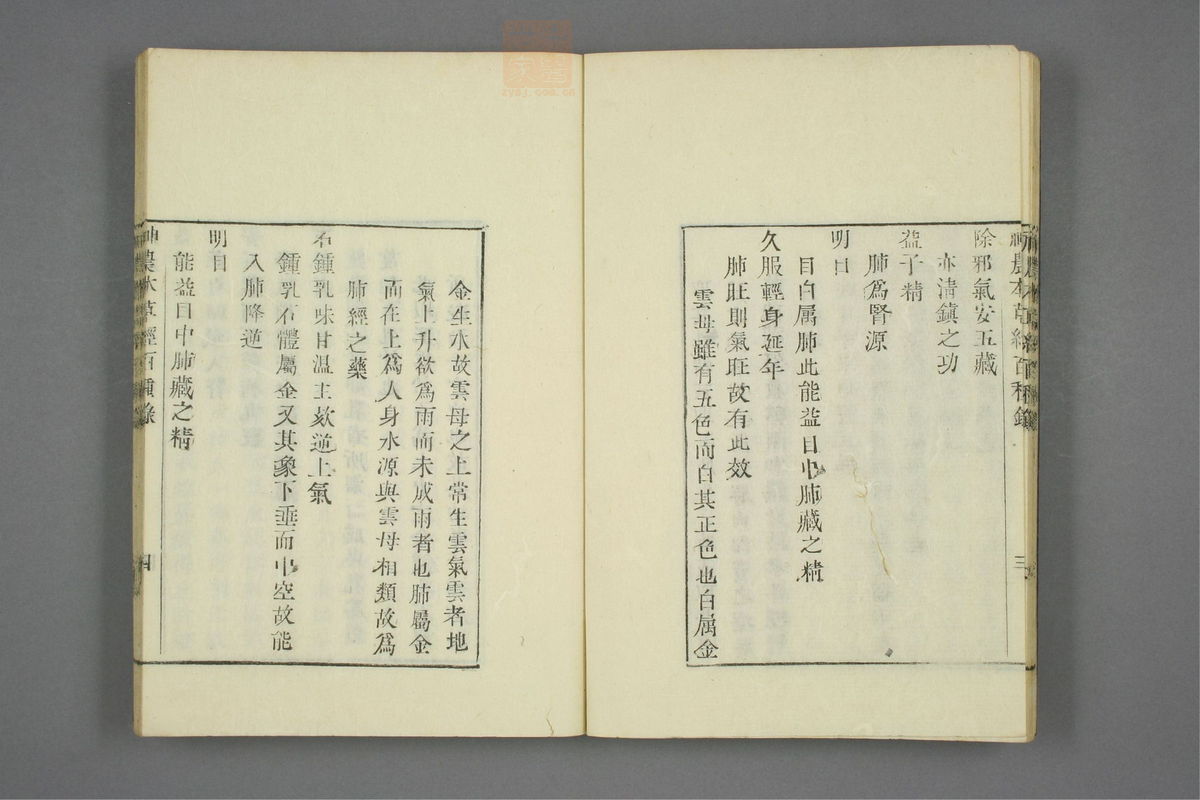 神農本草經百種錄
三
除邪氣安五藏
亦清鎮之功
益子精
肺爲腎源
明目
目白属肺此能益目中肺藏之精
久服輕身延年
肺旺則氣旺故有此效
雲母雖有五色而白其正色也白属金
金生水故雲母之上常生雲氣雲者地
氣上升欲爲雨而未成雨者也肺屬金
而在上爲人身水源與雲母相類故爲
肺經之藥
石鍾乳味甘温主欬逆上氣
鍾乳石體屬金又其象下垂而中空故能
入肺降逆
明目
能益目中肺藏之精
神農本草經百種錄
四
zysj.com.cn